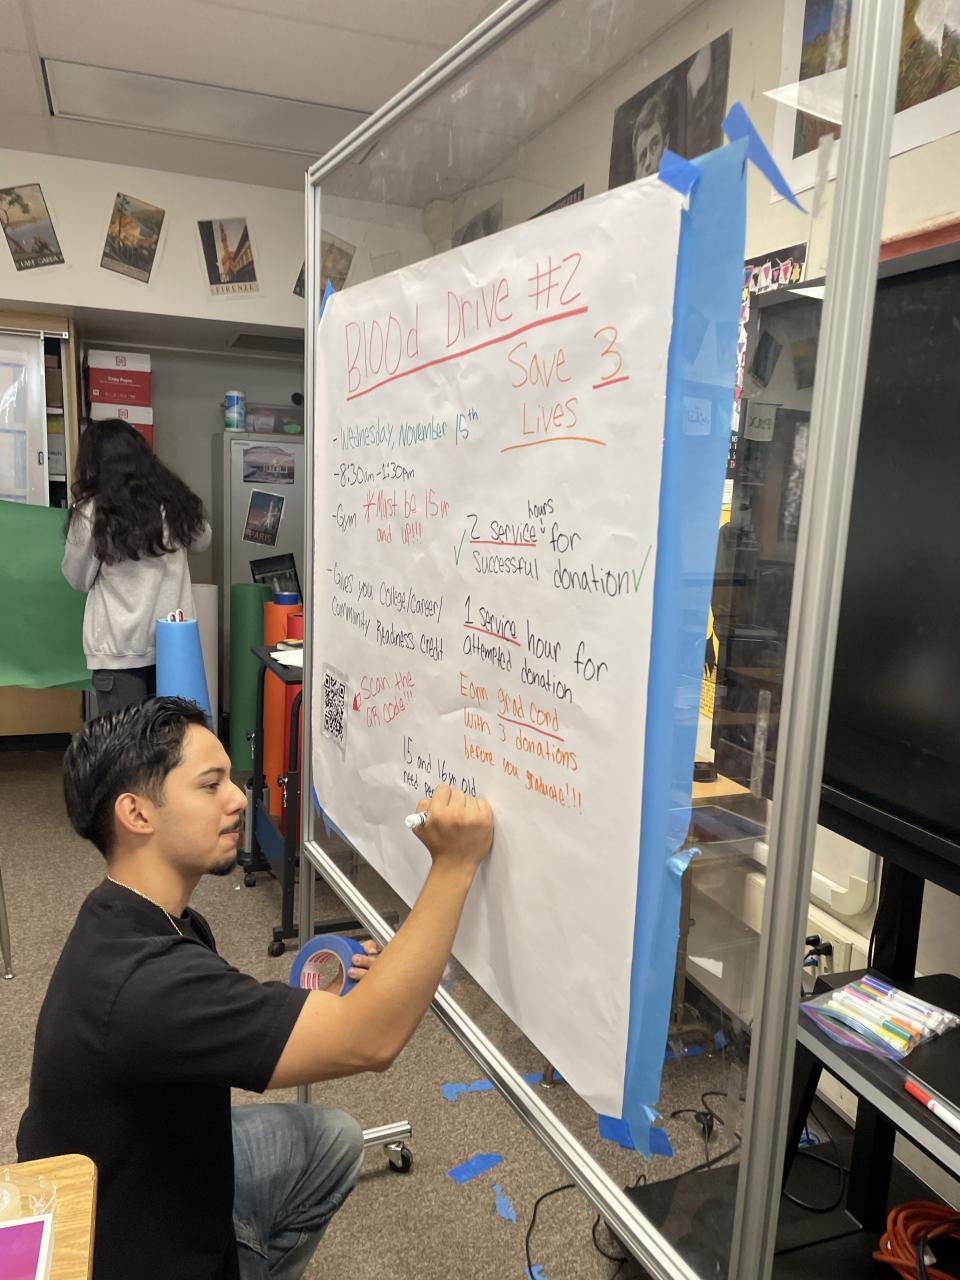 Blood Drive #2
Save 3
Lives
-Wednesday, November 15th
-8:30am-1:30pm
-Gym *Must be 15yr
and up!!!
hours
✓ 2 service for
successful donation✓
-Gives you College/Career/
Community Readiness Credit
1 service hour for
attempted donation
Scan the
QR code!!!
Earn grad cord
with 3 donations
before you graduate!!!
15 and 16yr old
need
LAKE GARDA
FIRENZE
Copy Paper
PARIS